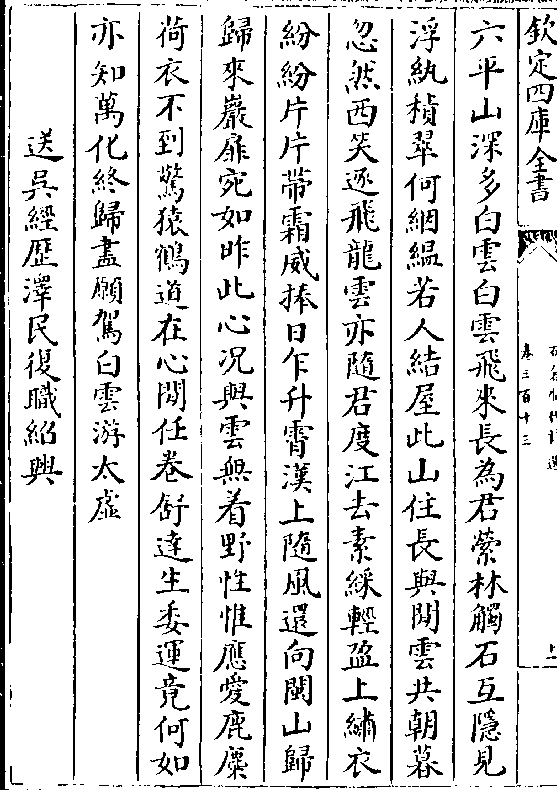 欽定四庫全書
卷三百十三
六平山深多白雲白雲飛來長為君縈林觸石互隱見
浮紈積翠何絪緼若人結屋此山住長與閒雲共朝暮
忽然西笑逐飛龍雲亦隨君度江去素綵輕盈上繡衣
紛紛片片帶霜威捧日乍升霄漢上隨風還向閩山歸
歸來巖扉宛如昨此心况與雲無着野性惟應愛鹿麋
荷衣不到驚猿鶴道在心閒任卷舒達生委運竟何如
亦知萬化終歸盡願駕白雲游太虛
送吳經歷澤民復職紹興